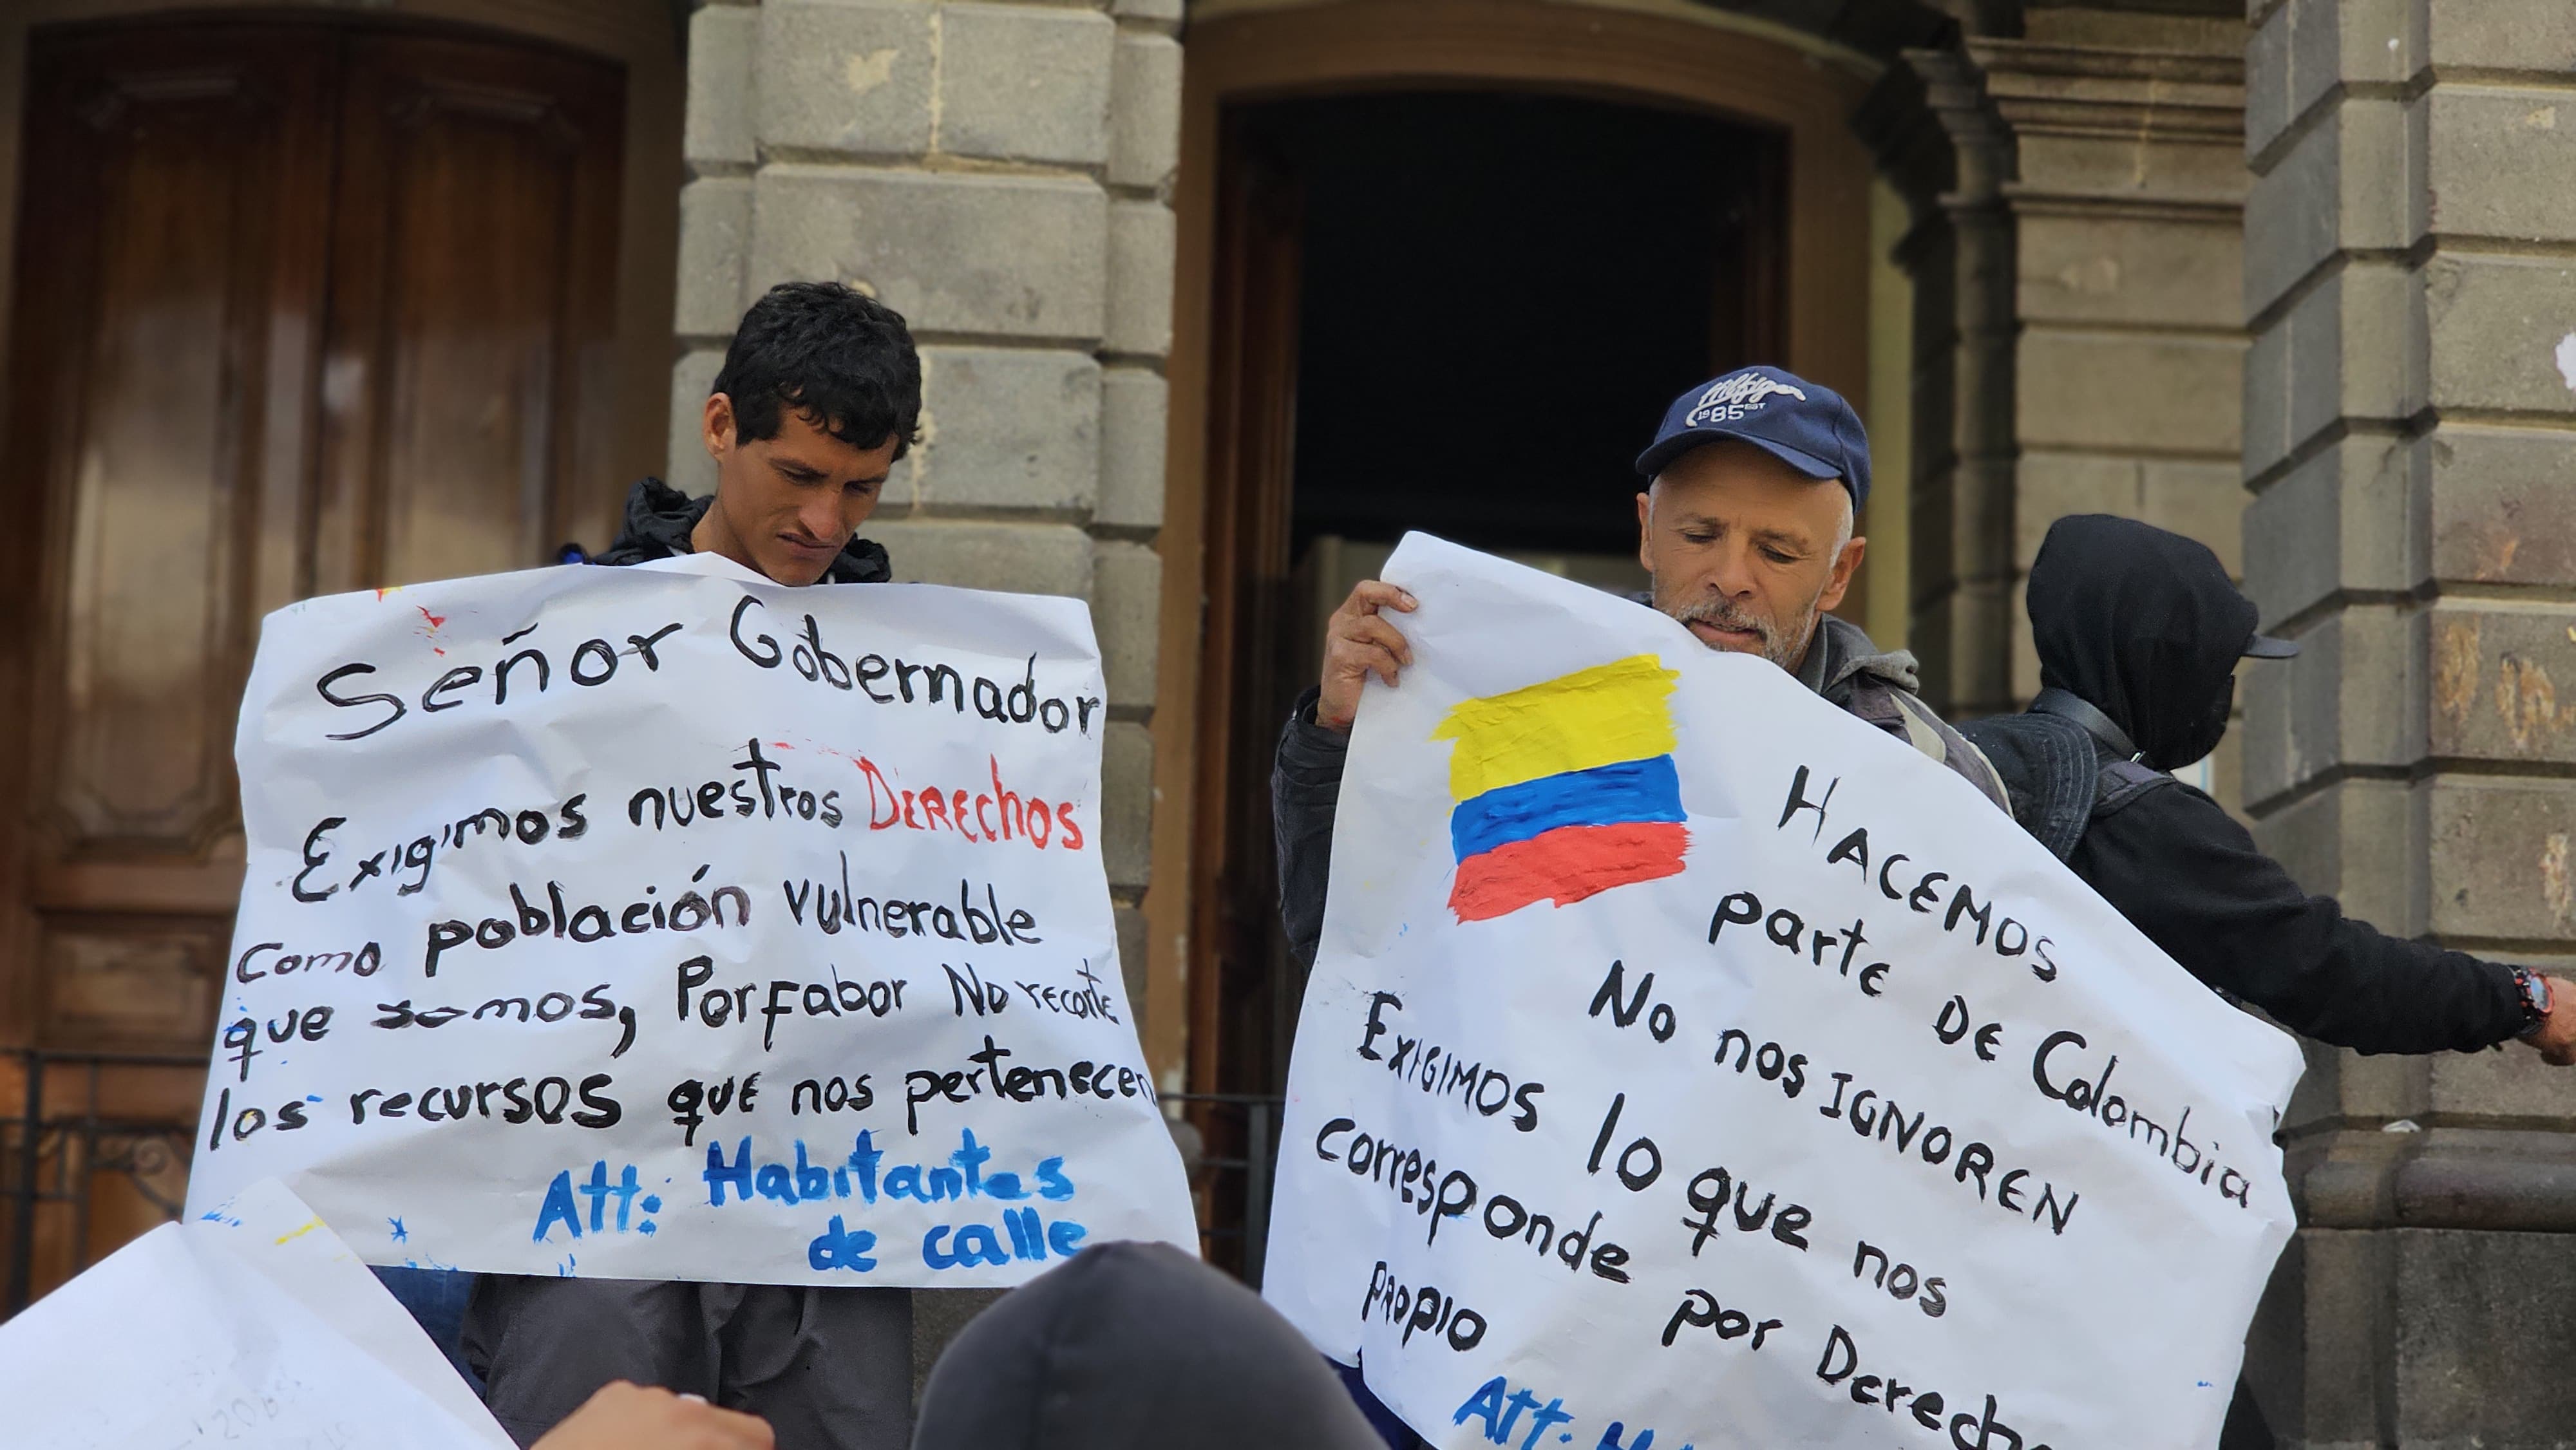 Señor Gobernador
Exigimos nuestros DERECHOS
como población vulnerable
que somos, Porfabor No recorte
los recursos que nos pertenecen
Att: Habitantes
de calle
Hilfiger
1985 EST
HACEMOS
parte DE Colombia
No nos IGNOREN
EXIGIMOS lo que nos
corresponde por Derecho
PROPIO
Att: